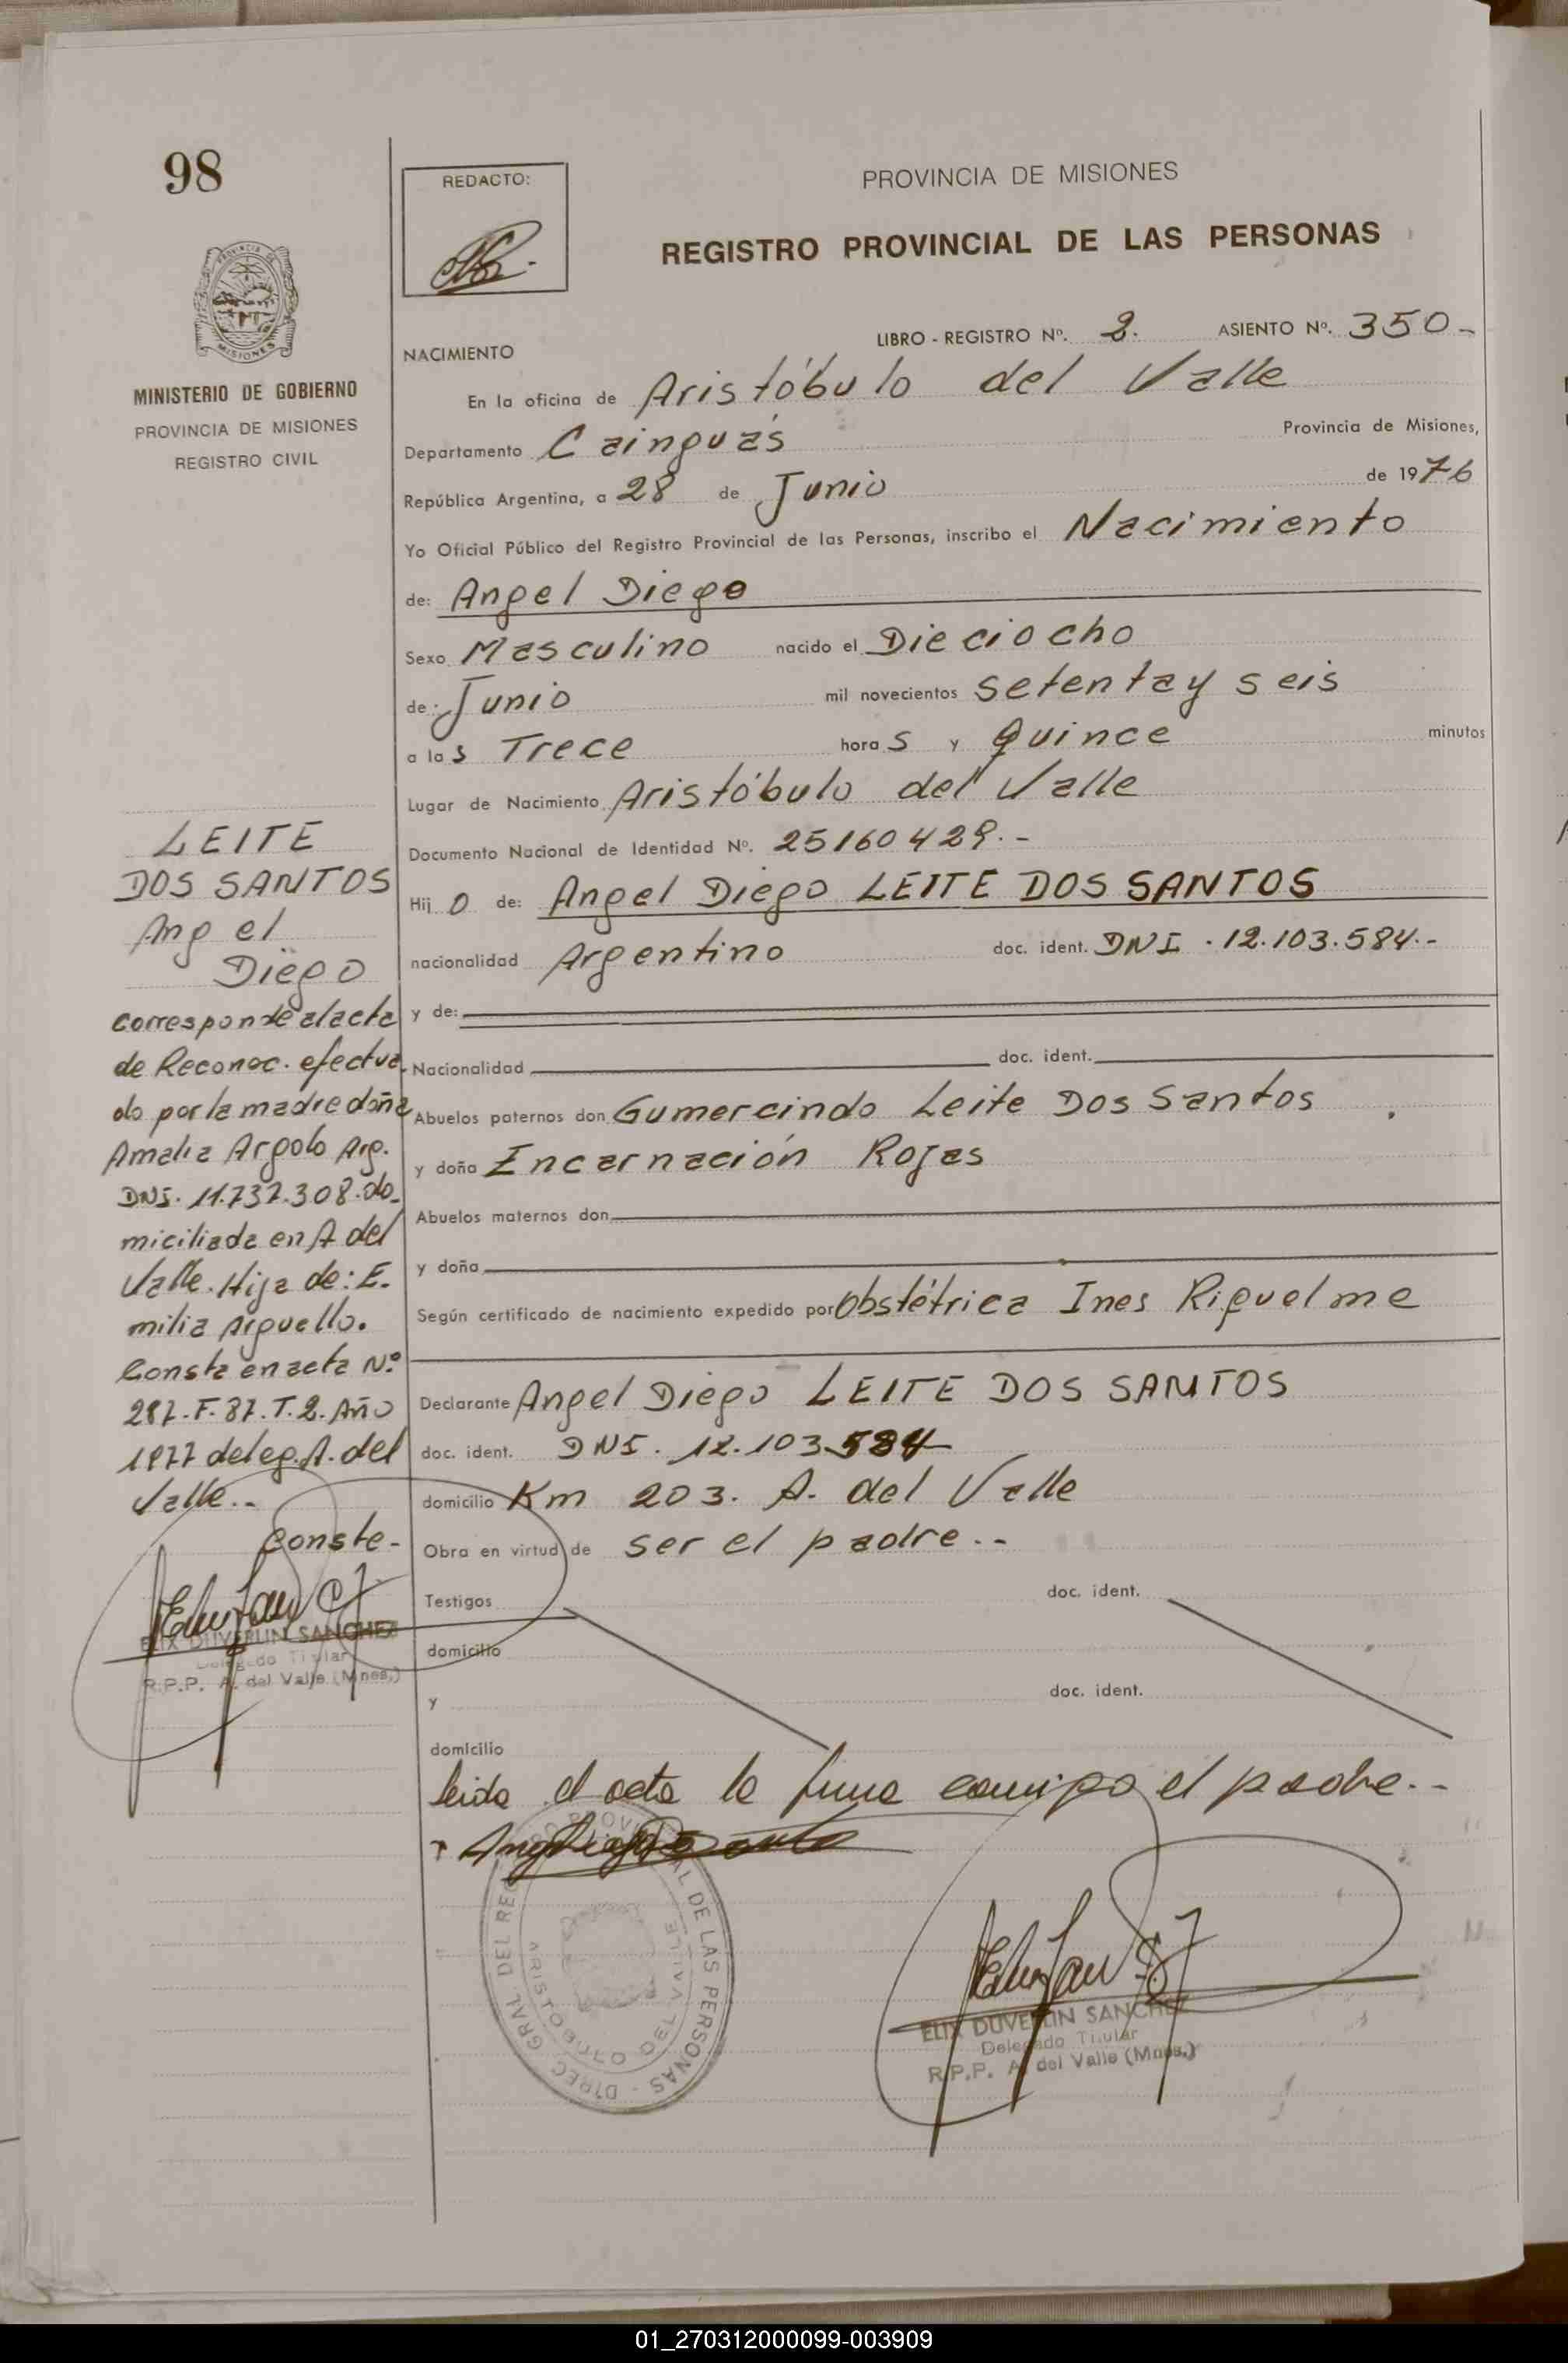 98
MINISTERIO DE GOBIERNO
PROVINCIA DE MISIONES
REGISTRO CIVIL
REDACTO:
PROVINCIA DE MISIONES
REGISTRO PROVINCIAL DE LAS PERSONAS
LIBRO - REGISTRO Nº. 2. ASIENTO Nº. 350-
NACIMIENTO
En la oficina de Aristóbulo del Valle
Departamento Cainguás Provincia de Misiones,
República Argentina, a 28 de Junio de 1976
Yo Oficial Público del Registro Provincial de las Personas, inscribo el Nacimiento
de: Angel Diego
Sexo Masculino nacido el Dieciocho
de: Junio mil novecientos setenta y seis
a las Trece horas y Quince minutos
Lugar de Nacimiento Aristóbulo del Valle
Documento Nacional de Identidad Nº. 25160429.-
Hijo de: Angel Diego LEITE DOS SANTOS
nacionalidad Argentino doc. ident. DNI. 12.103.584.-
y de:
Nacionalidad doc. ident.
Abuelos paternos don Gumercindo Leite Dos Santos
y doña Encarnación Rojas
Abuelos maternos don
y doña
Según certificado de nacimiento expedido por Obstétrica Ines Riquelme
Declarante Angel Diego LEITE DOS SANTOS
doc. ident. DNI. 12.103.584
domicilio Km 203. A. del Valle
Obra en virtud de ser el padre.-
Testigos doc. ident.
domicilio
y doc. ident.
domicilio
leida el acta la firma conmigo el padre.-
DIREC. GRAL. DEL REG. PROVINCIAL DE LAS PERSONAS
ARISTOBULO DEL VALLE
ELIX DUVERLIN SANCHEZ
Delegado Titular
R.P.P. A. del Valle (Mnes.)
LEITE
DOS SANTOS
Angel
Diego
corresponde al acta
de Reconoc. efectua-
do por la madre doña
Amalia Argolo Arg.
DNI. 11.737.308. do-
miciliada en A del
Valle. Hija de: E-
milia Arguello.
Consta en acta Nº
287. F. 87. T. 2. Año
1977 deleg. A. del
Valle.-
Conste-
ELIX DUVERLIN SANCHEZ
Delegado Titular
R.P.P. A. del Valle (Mnes.)
01_270312000099-003909